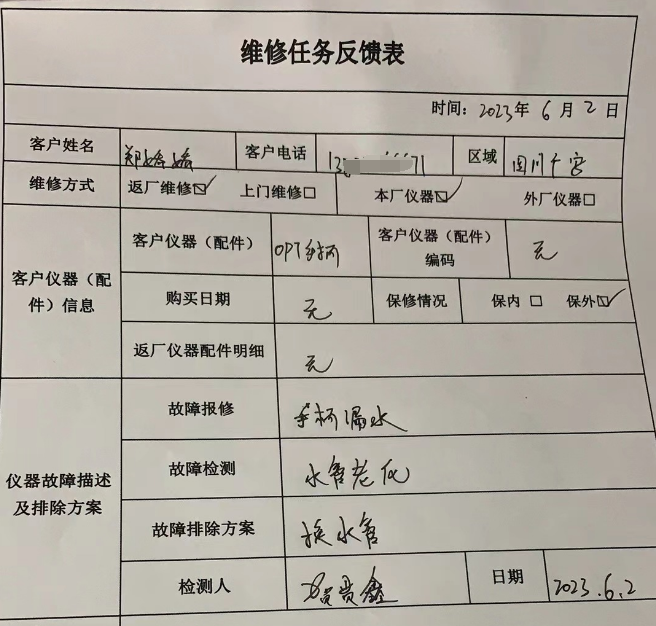 维修任务反馈表
时间：2023年 6 月 2 日
客户姓名 郑婷婷 客户电话 区域 四川
维修方式 返厂维修☑ 上门维修□ 本厂仪器☑ 外厂仪器□
客户仪器（配件）信息
客户仪器（配件） OPT手柄 客户仪器（配件）编码 无
购买日期 无 保修情况 保内 □ 保外☑
返厂仪器配件明细 无
仪器故障描述及排除方案
故障报修 手柄漏水
故障检测 水管老化
故障排除方案 换水管
检测人 日期 2023.6.2